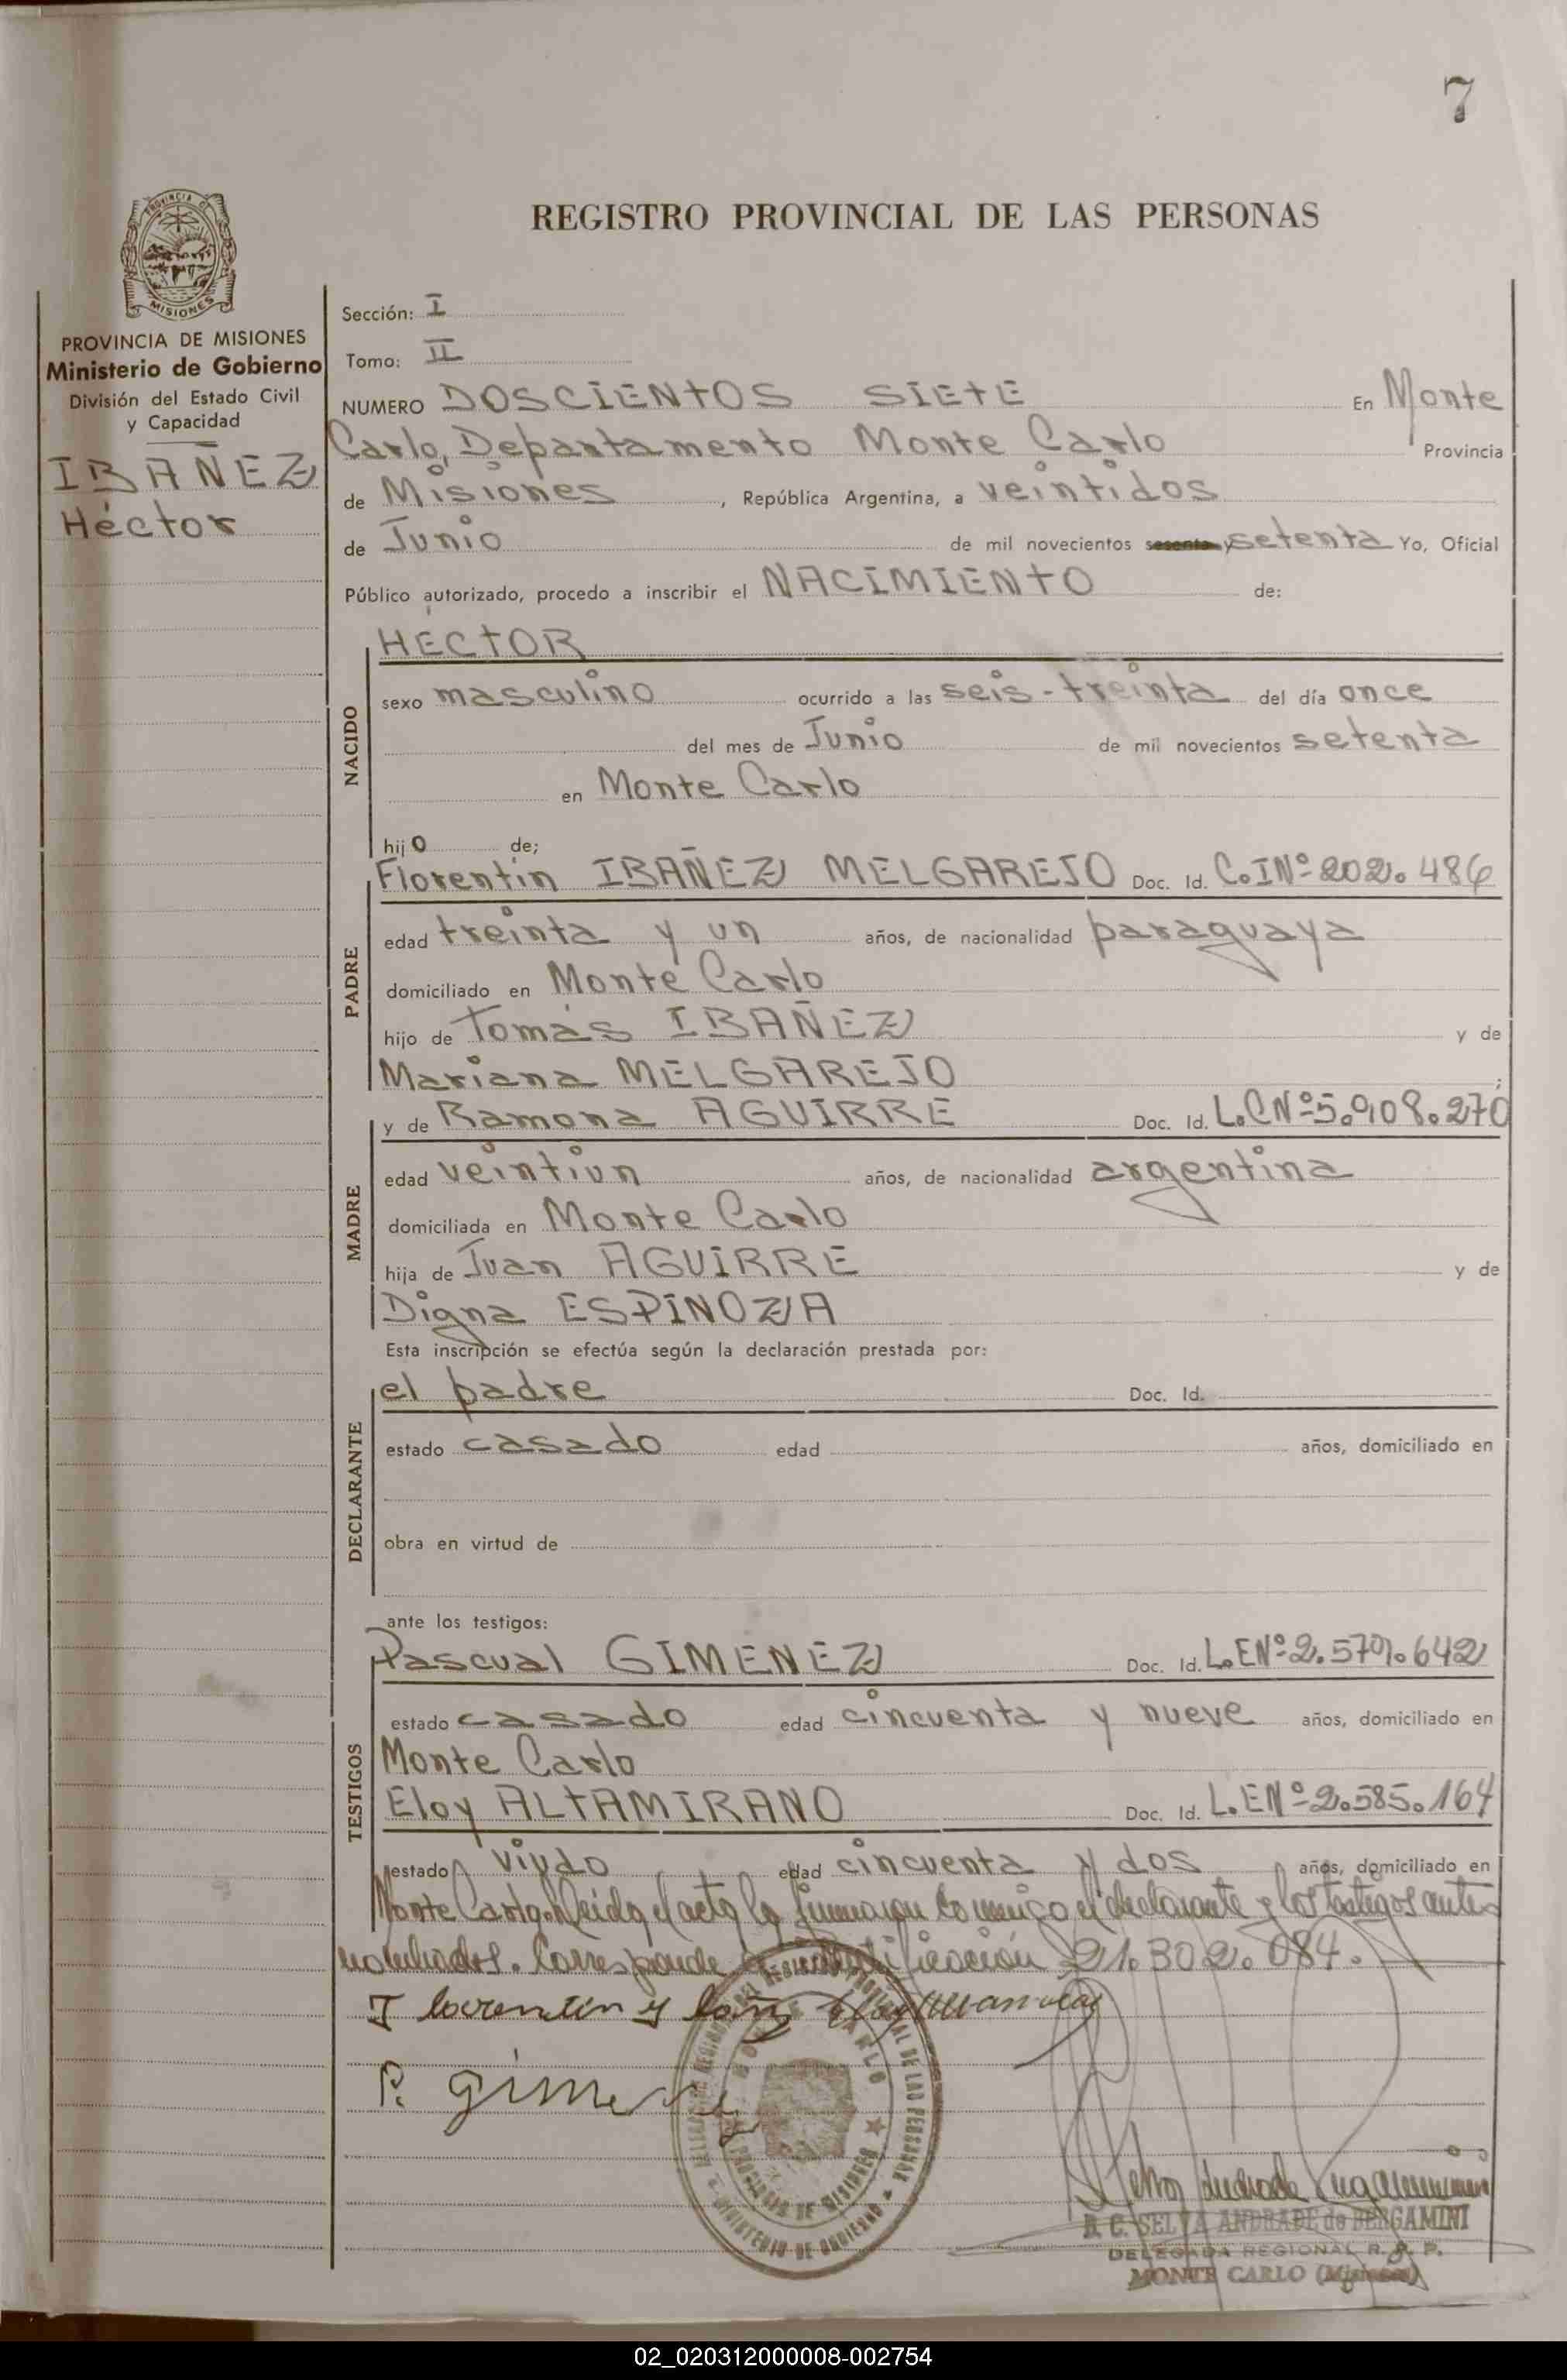 7
REGISTRO PROVINCIAL DE LAS PERSONAS
PROVINCIA DE MISIONES
Ministerio de Gobierno
División del Estado Civil
y Capacidad
IBAÑEZ
Héctor
Sección: I
Tomo: II
NUMERO DOSCIENTOS SIETE En Monte
Carlo, Departamento Monte Carlo Provincia
de Misiones, República Argentina, a veintidos
de Junio de mil novecientos sesenta y setenta Yo, Oficial
Público autorizado, procedo a inscribir el NACIMIENTO de:
NACIDO
HÉCTOR
sexo masculino ocurrido a las seis-treinta del día once
del mes de Junio de mil novecientos setenta
en Monte Carlo
hijo de;
PADRE
Florentín IBAÑEZ MELGAREJO Doc. Id. C.INº 202.486
edad treinta y un años, de nacionalidad paraguaya
domiciliado en Monte Carlo
hijo de Tomás IBAÑEZ y de
Mariana MELGAREJO;
MADRE
y de Ramona AGUIRRE Doc. Id. L.CNº 5.908.270
edad veintiun años, de nacionalidad argentina
domiciliada en Monte Carlo
hija de Juan AGUIRRE y de
Digna ESPINOZA
Esta inscripción se efectúa según la declaración prestada por:
DECLARANTE
el padre Doc. Id.
estado casado edad años, domiciliado en
obra en virtud de
ante los testigos:
TESTIGOS
Pascual GIMENEZ Doc. Id. L.ENº 2.579.642
estado casado edad cincuenta y nueve años, domiciliado en
Monte Carlo
Eloy ALTAMIRANO Doc. Id. L.ENº 2.585.164
estado viudo edad cincuenta y dos años, domiciliado en
Monte Carlo. Leída el acta la firmaron conmigo el declarante y los testigos antes
nombrados. Corresponde identificación 21.302.084.
P. Gimenez
B. C. SELVA ANDRADE de BERGAMINI
DELEGADA REGIONAL R. P. P.
MONTE CARLO (Misiones)
02_020312000008-002754